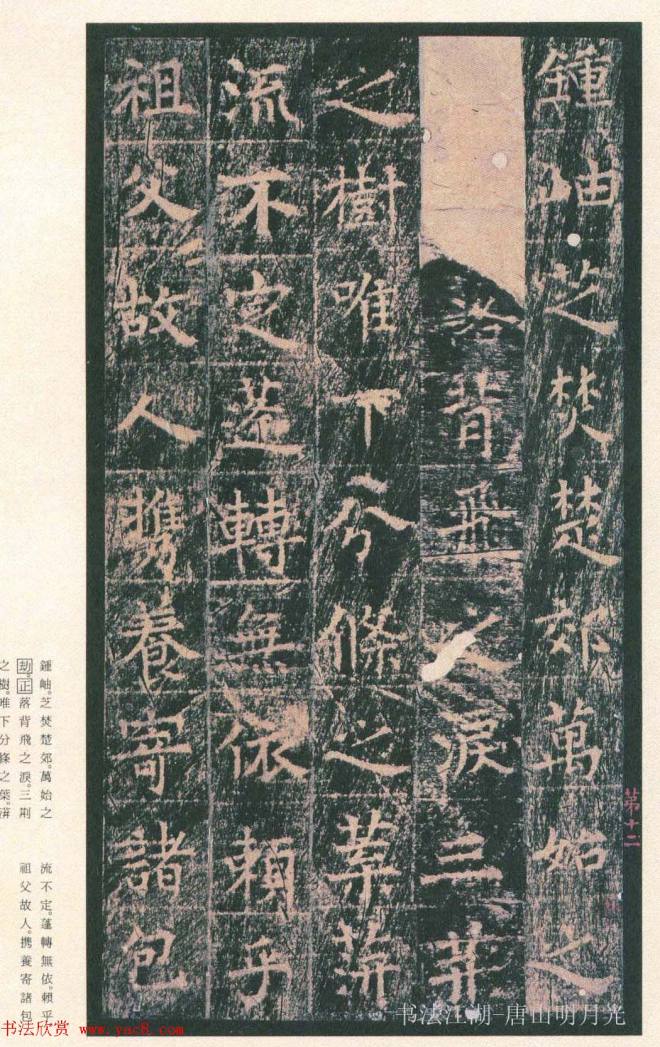 鍾岫芝焚楚郊萬始之
落背飛之淚三荊
之樹唯下分條之葉蓱
流不定蓬轉無依賴乎
祖父故人攜養寄諸包
第十二
鍾岫。芝焚楚郊。萬始之
劫。正落背飛之淚。三荊
之樹。唯下分條之葉。蓱
流不定。蓬轉無依。賴乎
祖父故人。携養寄諸包
书法欣赏 www.yac8.com
书法江湖-唐山明月光